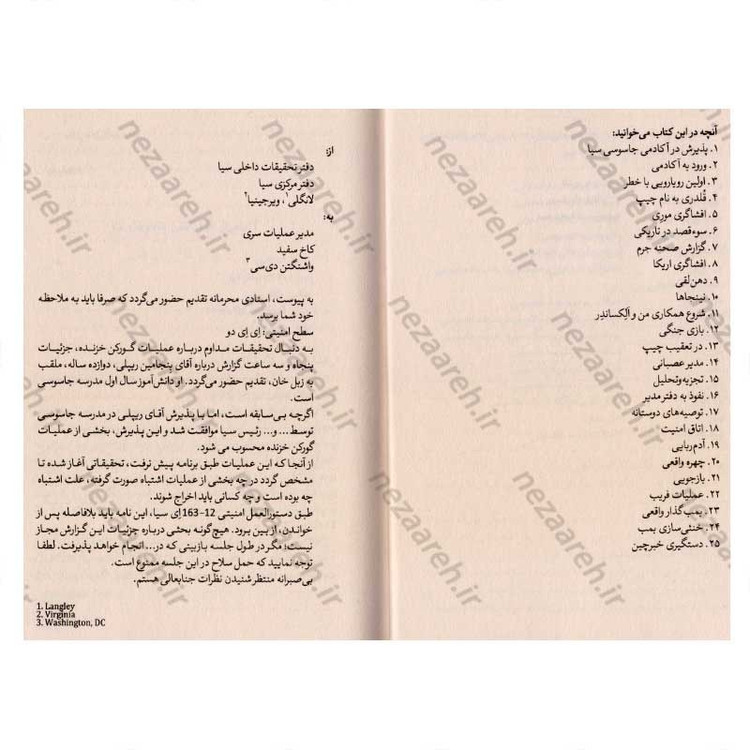 آنچه در این کتاب می‌خوانید:
۱. پذیرش در آکادمی جاسوسی سیا
۲. ورود به آکادمی
۳. اولین رویارویی با خطر
۴. قُلدری به نام چیپ
۵. افشاگری موری
۶. سوءقصد در تاریکی
۷. گزارش صحنه جرم
۸. افشاگری اریکا
۹. دهن‌لقی
۱۰. نینجاها
۱۱. شروع همکاری من و اَلِکساندِر
۱۲. بازی جنگی
۱۳. در تعقیب چیپ
۱۴. مدیر عصبانی
۱۵. تجزیه‌وتحلیل
۱۶. نفوذ به دفتر مدیر
۱۷. توصیه‌های دوستانه
۱۸. اتاق امنیت
۱۹. آدم‌ربایی
۲۰. چهره واقعی
۲۱. بازجویی
۲۲. عملیات فریب
۲۳. بمب‌گذار واقعی
۲۴. خنثی‌سازی بمب
۲۵. دستگیری خبرچین
از:
دفتر تحقیقات داخلی سیا
دفتر مرکزی سیا
لانگلی۱، ویرجینیا۲
به:
مدیر عملیات سری
کاخ سفید
واشنگتن دی‌سی۳
به پیوست، اسنادی محرمانه تقدیم حضور می‌گردد که صرفا باید به ملاحظه
خود شما برسد.
سطح امنیتی: اِی اِی دو
به دنبال تحقیقات مداوم درباره عملیات گورکن خزنده، جزئیات
پنجاه و سه ساعت گزارش درباره آقای بِنجامین ریپلی، دوازده ساله، ملقب
به زبل خان، تقدیم حضور می‌گردد. او دانش‌آموز سال اول مدرسه جاسوسی
است.
اگرچه بی‌سابقه است، اما با پذیرش آقای ریپلی در مدرسه جاسوسی
توسط... و... رئیس سیا موافقت شد و این پذیرش، بخشی از عملیات
گورکن خزنده محسوب می‌شود.
از آنجا که این عملیات طبق برنامه پیش نرفت، تحقیقاتی آغاز شده تا
مشخص گردد در چه بخشی از عملیات اشتباه صورت گرفته، علت اشتباه
چه بوده است و چه کسانی باید اخراج شوند.
طبق دستورالعمل امنیتی 12-163اِی سیا، این نامه باید بلافاصله پس از
خواندن، از بین برود. هیچ‌گونه بحثی درباره جزئیات این گزارش مجاز
نیست؛ مگر در طول جلسه بازبینی که در... انجام خواهد پذیرفت. لطفا
توجه نمایید که حمل سلاح در این جلسه ممنوع است.
بی‌صبرانه منتظر شنیدن نظرات جنابعالی هستم.
1. Langley
2. Virginia
3. Washington, DC
nezaareh.ir
nezaareh.ir
nezaareh.ir
nezaareh.ir
nezaareh.ir
nezaareh.ir
nezaareh.ir
nezaareh.ir
nezaareh.ir
nezaareh.ir
nezaareh.ir
nezaareh.ir